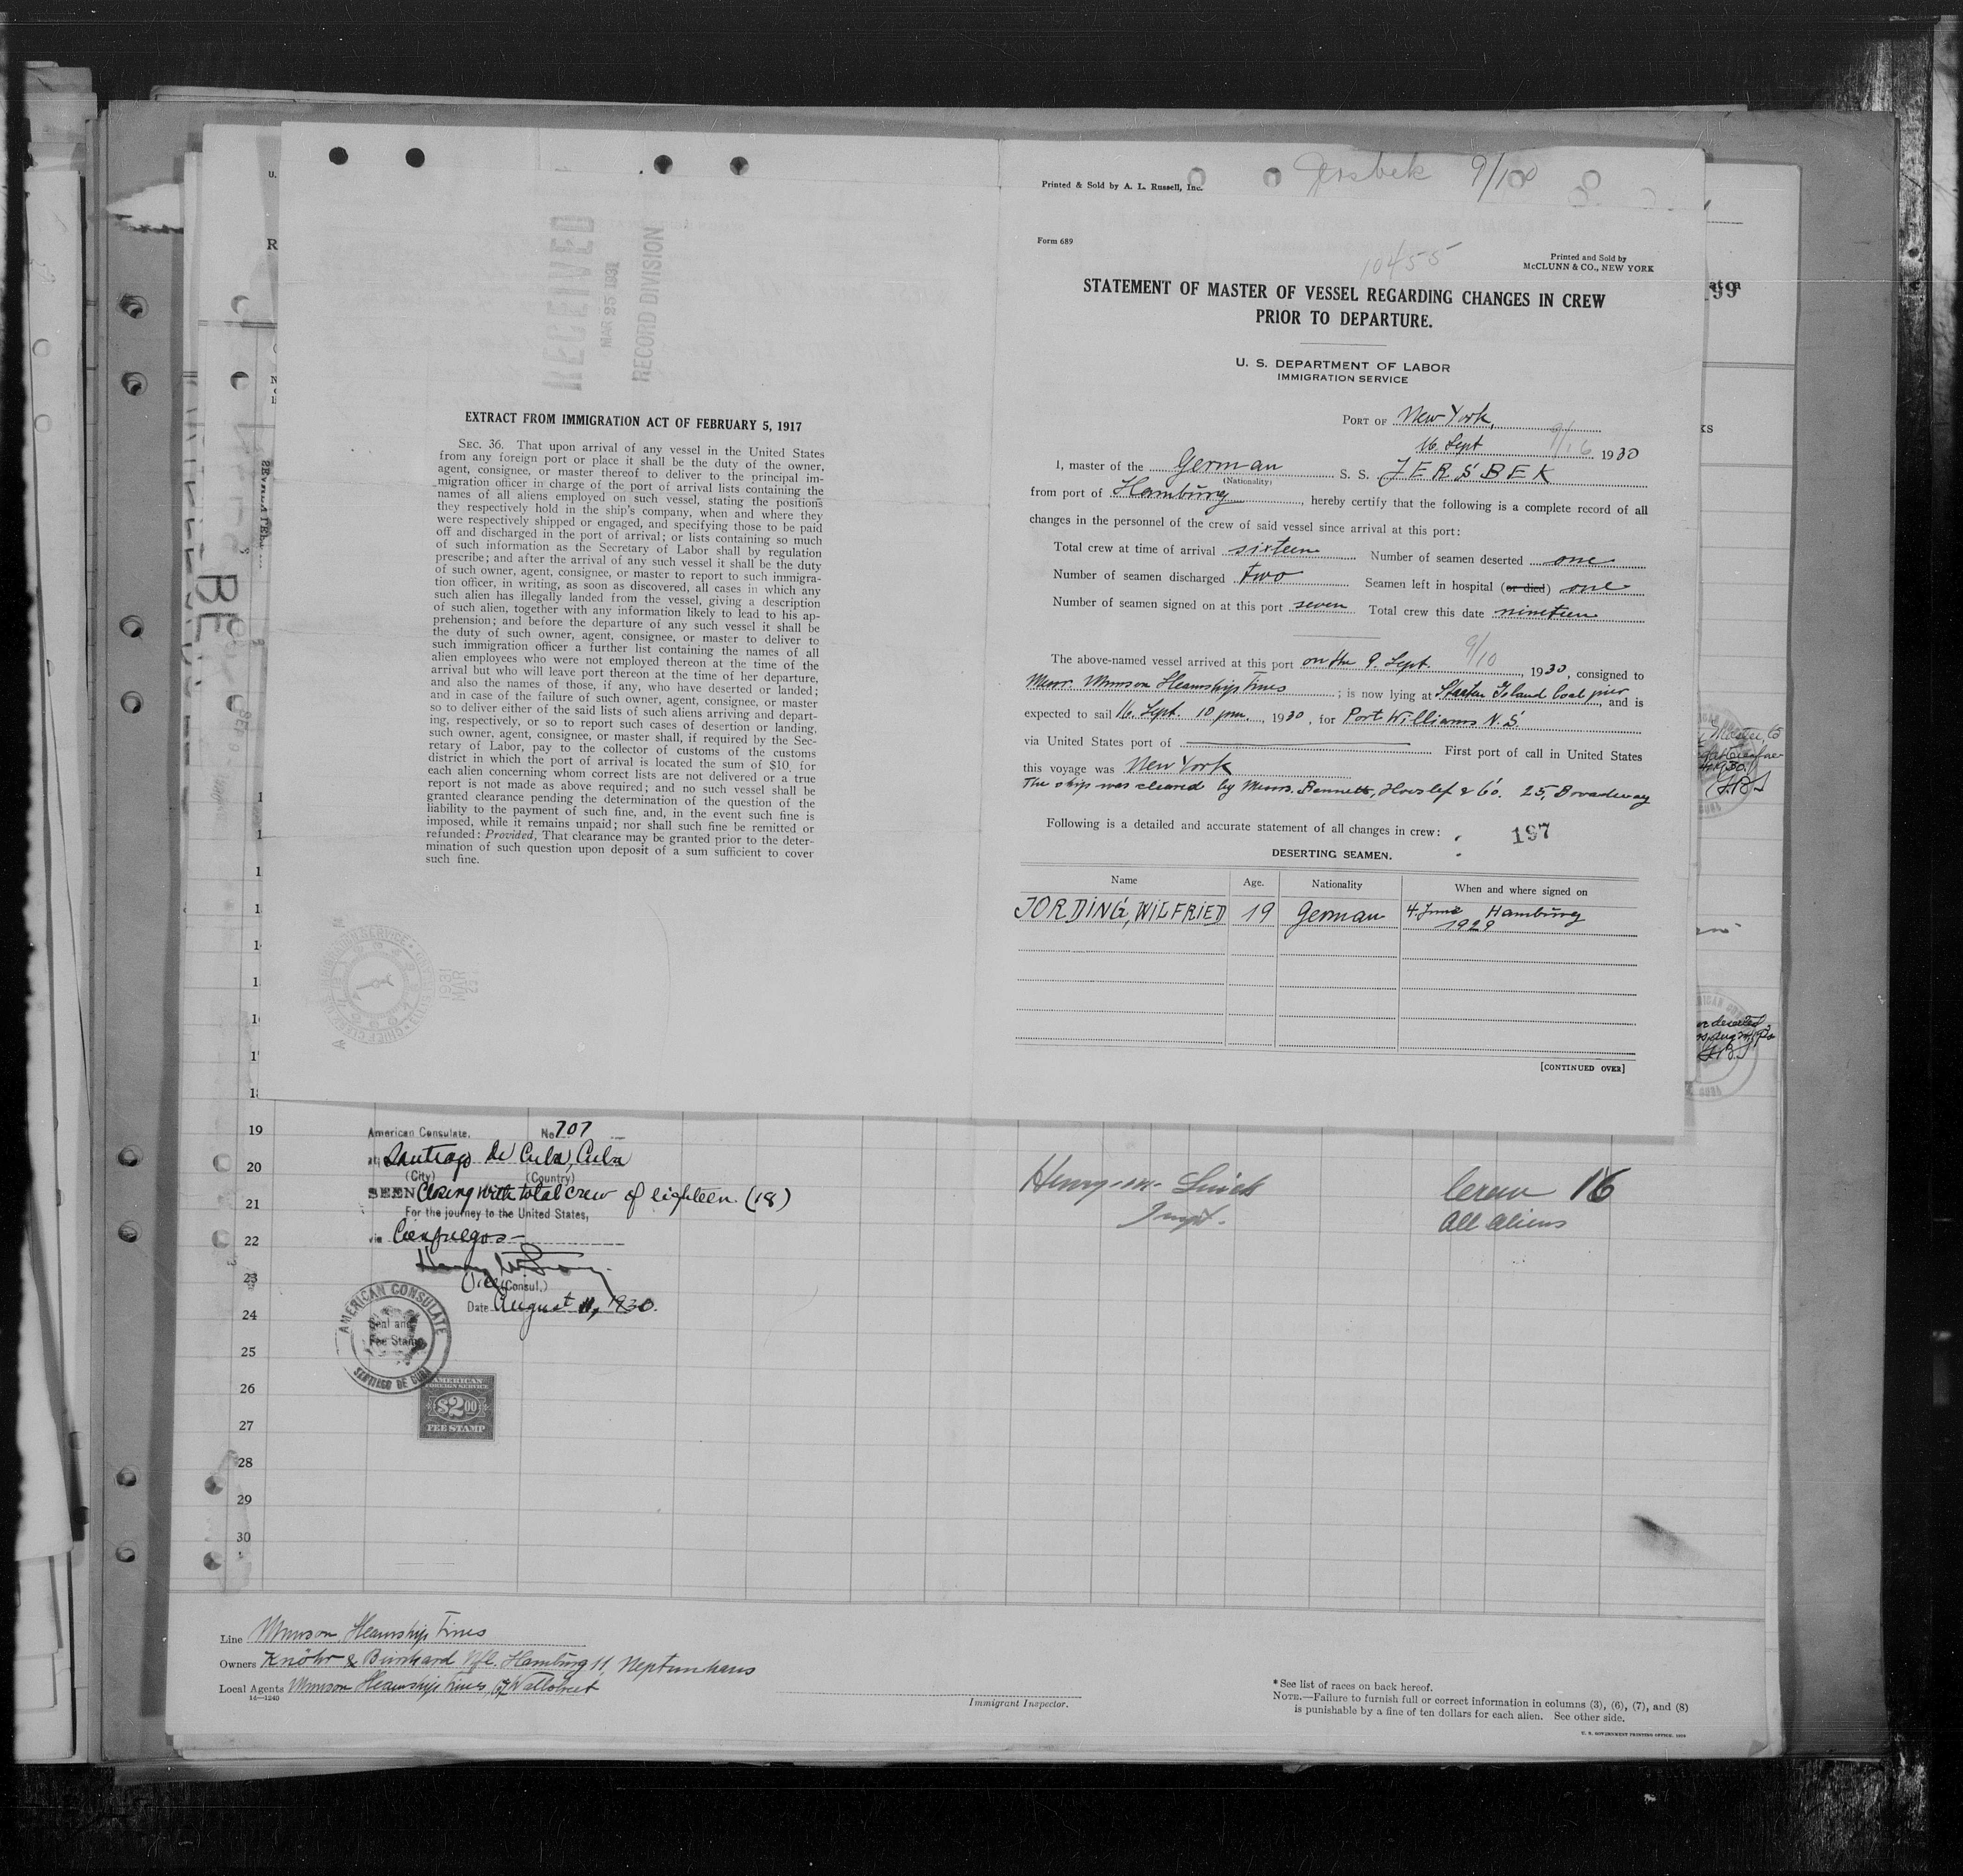 RECEIVED
MAR 25 1931
RECORD DIVISION
EXTRACT FROM IMMIGRATION ACT OF FEBRUARY 5, 1917
SEC. 36. That upon arrival of any vessel in the United States
from any foreign port or place it shall be the duty of the owner,
agent, consignee, or master thereof to deliver to the principal im-
migration officer in charge of the port of arrival lists containing the
names of all aliens employed on such vessel, stating the positions
they respectively hold in the ship's company, when and where they
were respectively shipped or engaged, and specifying those to be paid
off and discharged in the port of arrival; or lists containing so much
of such information as the Secretary of Labor shall by regulation
prescribe; and after the arrival of any such vessel it shall be the duty
of such owner, agent, consignee, or master to report to such immigra-
tion officer, in writing, as soon as discovered, all cases in which any
such alien has illegally landed from the vessel, giving a description
of such alien, together with any information likely to lead to his ap-
prehension; and before the departure of any such vessel it shall be
the duty of such owner, agent, consignee, or master to deliver to
such immigration officer a further list containing the names of all
alien employees who were not employed thereon at the time of the
arrival but who will leave port thereon at the time of her departure,
and also the names of those, if any, who have deserted or landed;
and in case of the failure of such owner, agent, consignee, or master
so to deliver either of the said lists of such aliens arriving and depart-
ing, respectively, or so to report such cases of desertion or landing,
such owner, agent, consignee, or master shall, if required by the Sec-
retary of Labor, pay to the collector of customs of the customs
district in which the port of arrival is located the sum of $10 for
each alien concerning whom correct lists are not delivered or a true
report is not made as above required; and no such vessel shall be
granted clearance pending the determination of the question of the
liability to the payment of such fine, and, in the event such fine is
imposed, while it remains unpaid; nor shall such fine be remitted or
refunded: Provided, That clearance may be granted prior to the deter-
mination of such question upon deposit of a sum sufficient to cover
such fine.
Printed & Sold by A. L. Russell, Inc.
Jersbek 9/10
Form 689
10455
Printed and Sold by
McCLUNN & CO., NEW YORK
STATEMENT OF MASTER OF VESSEL REGARDING CHANGES IN CREW
PRIOR TO DEPARTURE.
U. S. DEPARTMENT OF LABOR
IMMIGRATION SERVICE
PORT OF New York,
16. Sept 9/16 1930
I, master of the German S. S. JERSBEK
(Nationality)
from port of Hamburg, hereby certify that the following is a complete record of all
changes in the personnel of the crew of said vessel since arrival at this port:
Total crew at time of arrival sixteen Number of seamen deserted one
Number of seamen discharged two Seamen left in hospital (or died) one
Number of seamen signed on at this port seven Total crew this date nineteen
The above-named vessel arrived at this port on the 9. Sept. 9/10, 1930, consigned to
Messr. Munson Steamship Lines; is now lying at Staaten Island Coal pier, and is
expected to sail 16. Sept. 10 pm, 1930, for Port Williams N. S.
via United States port of First port of call in United States
this voyage was New York
The ship was cleared by Messrs. Bennett, & Co. 25, Broadway
Following is a detailed and accurate statement of all changes in crew:
197
DESERTING SEAMEN.
Name Age. Nationality When and where signed on
JORDING, WILFRIED 19 German 4. June Hamburg
1929
[CONTINUED OVER]
19
20
21
22
23
24
25
26
27
28
29
30
American Consulate, No 707
at Santiago de Cuba, Cuba
(City) (Country)
SEEN Closing with total crew of eighteen. (18)
For the journey to the United States,
via Cienfuegos
Vice (Consul.)
Date August 11, 1930.
AMERICAN CONSULATE
Seal and
Fee Stamp
SANTIAGO DE CUBA
AMERICAN
FOREIGN SERVICE
$2.00
FEE STAMP
Inspt.
Crew 16
All Aliens
Line Munson Steamship Lines
Owners Knöhr & Burchard Nfl. Hamburg 11, Neptunhaus
Local Agents Munson Steamship Lines,
14—1240
Immigrant Inspector.
* See list of races on back hereof.
NOTE.—Failure to furnish full or correct information in columns (3), (6), (7), and (8)
is punishable by a fine of ten dollars for each alien. See other side.
U. S. GOVERNMENT PRINTING OFFICE